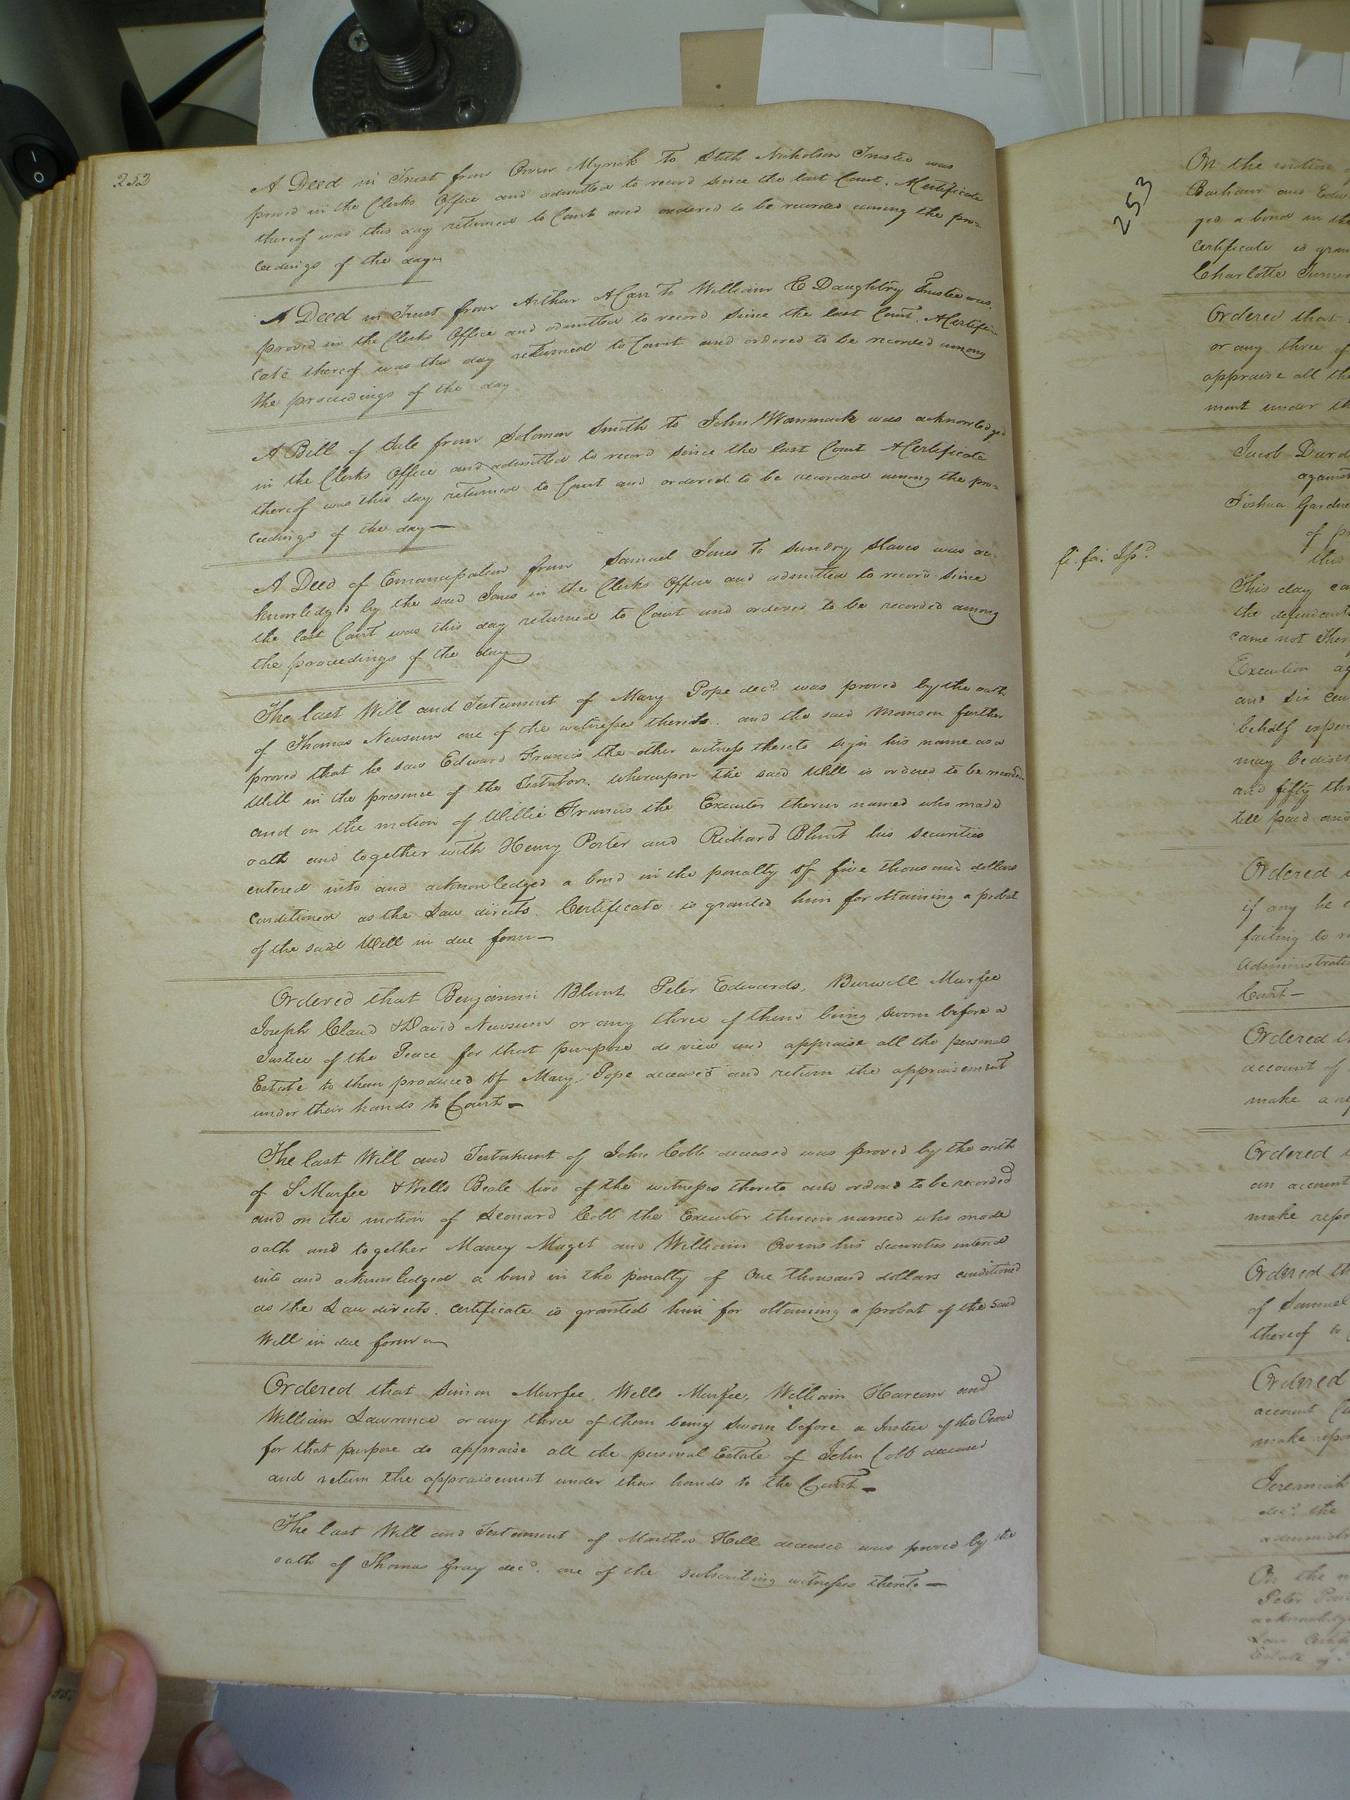 252
A Deed in Trust from Owen Myrick To Stith Nicholson Trustee was
proved in the Clerks Office and admitted to record since the last Court. A Certificate
thereof was this day returned to Court and ordered to be recorded among the pro=
ceedings of the day
A Deed in Trust from Arthur A Carr To William E Daughtry Trustee was
proved in the Clerks Office and admitted to record since the last Court. A Certifi=
cate thereof was this day returned to Court and ordered to be recorded among
the proceedings of the day
A Bill of Sale from Solomon Smith to John Wommack was acknowledged
in the Clerks Office and admitted to record since the last Court A Certificate
thereof was this day returned to Court and ordered to be recorded among the pro=
ceedings of the day—
A Deed of Emancipation from Samuel Jones To Sundry Slaves was ac=
knowledged by the said Jones in the Clerks Office and admitted to record since
the last Court was this day returned to Court and ordered to be recorded among
the proceedings of the day
The last Will and Testament of Mary Pope decd. was proved by the oath
of Thomas Newsum one of the witnesses thereto. and the said further
proved that he saw Edward Francis the other witness thereto sign his name as a
Will in the presence of the Testator. whereupon the said Will is ordered to be recorded
and on the motion of Willie Francis the Executor therein named who made
oath and together with Henry Porter and Richard Blunt his securities
entered into and acknowledged a bond in the penalty of five thousand dollars
conditioned as the Law directs. Certificate is granted him for obtaining a probat
of the said Will in due form—
Ordered that Benjamin Blunt Peter Edwards, Burwell Murfee
Joseph Claud & David Newsum or any three of them being sworn before a
Justice of the Peace for that purpose do view and appraise all the personal
Estate to them produced of Mary Pope deceased and return the appraisement
under their hands to Court—
The last Will and Testament of John Cobb deceased was proved by the oath
of S Murfee & Wells Beale two of the witnesses thereto and ordered to be recorded
and on the motion of Leonard Cobb the Executor therein named who made
oath and together Maney Maget and William Owens his Securities entered
into and acknowledged a bond in the penalty of One thousand dollars conditioned
as the Law directs. certificate is granted him for obtaining a probat of the said
Will in due form
Ordered that Simon Murfee, Wells Murfee, William Harcum and
William Lawrence or any three of them being Sworn before a Justice of the Peace
for that purpose do appraise all the personal Estate of John Cobb deceased
and return the appraisement under their hands to the Court—
The last Will and Testament of Matthew Hill deceased was proved by the
oath of Thomas Gray decd. one of the subscribing witnesses thereto—
253
On the motion
ged a bond in the
certificate is gran
Charlotte Turner
Ordered that
or any three of
appraise all the
ment under th
Jacob Dard
against
Joshua Gardne
of p
this
fi. fa. Issd.
This day ca
the defendant
came not Ther
Execution ag
and six cen
behalf expen
may be disc
and fifty thr
till paid and
Ordered
if any he
failing to
Administrat
Court—
Ordered th
account of
make a re
Ordered
an account
make repo
Ordered th
of Samuel
thereof to
Ordered
account
make repor
Jeremiah
decd. the
administ
On the m
Peter
acknowledge
Estate of